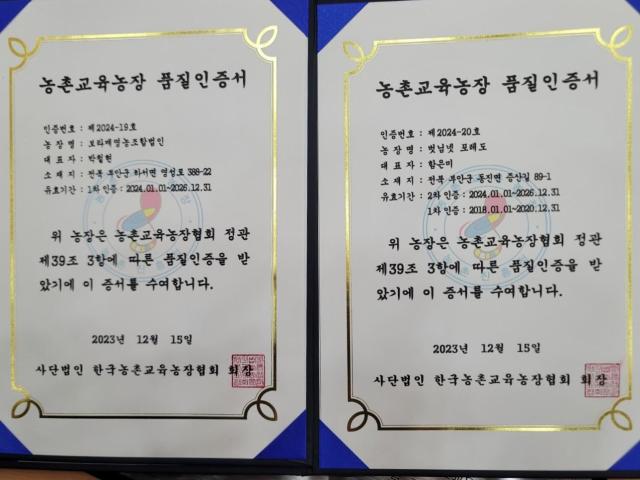 농촌교육농장 품질인증서
인증번호 : 제2024-19호
농 장 명 : 보라매영농조합법인
대 표 자 : 박철현
소 재 지 : 전북 부안군 하서면 영성로 388-22
유효기간 : 1차 인증 : 2024.01.01~2026.12.31
위 농장은 농촌교육농장협회 정관
제39조 3항에 따른 품질인증을 받
았기에 이 증서를 수여합니다.
2023년 12월 15일
사단법인 한국농촌교육농장협회 회장
농촌교육농장 품질인증서
인증번호 : 제2024-20호
농 장 명 : 벗님넷 모래도
대 표 자 : 함은미
소 재 지 : 전북 부안군 동진면 증산길 89-1
유효기간 : 2차 인증 : 2024.01.01~2026.12.31
1차 인증 : 2018.01.01~2020.12.31
위 농장은 농촌교육농장협회 정관
제39조 3항에 따른 품질인증을 받
았기에 이 증서를 수여합니다.
2023년 12월 15일
사단법인 한국농촌교육농장협회 회장